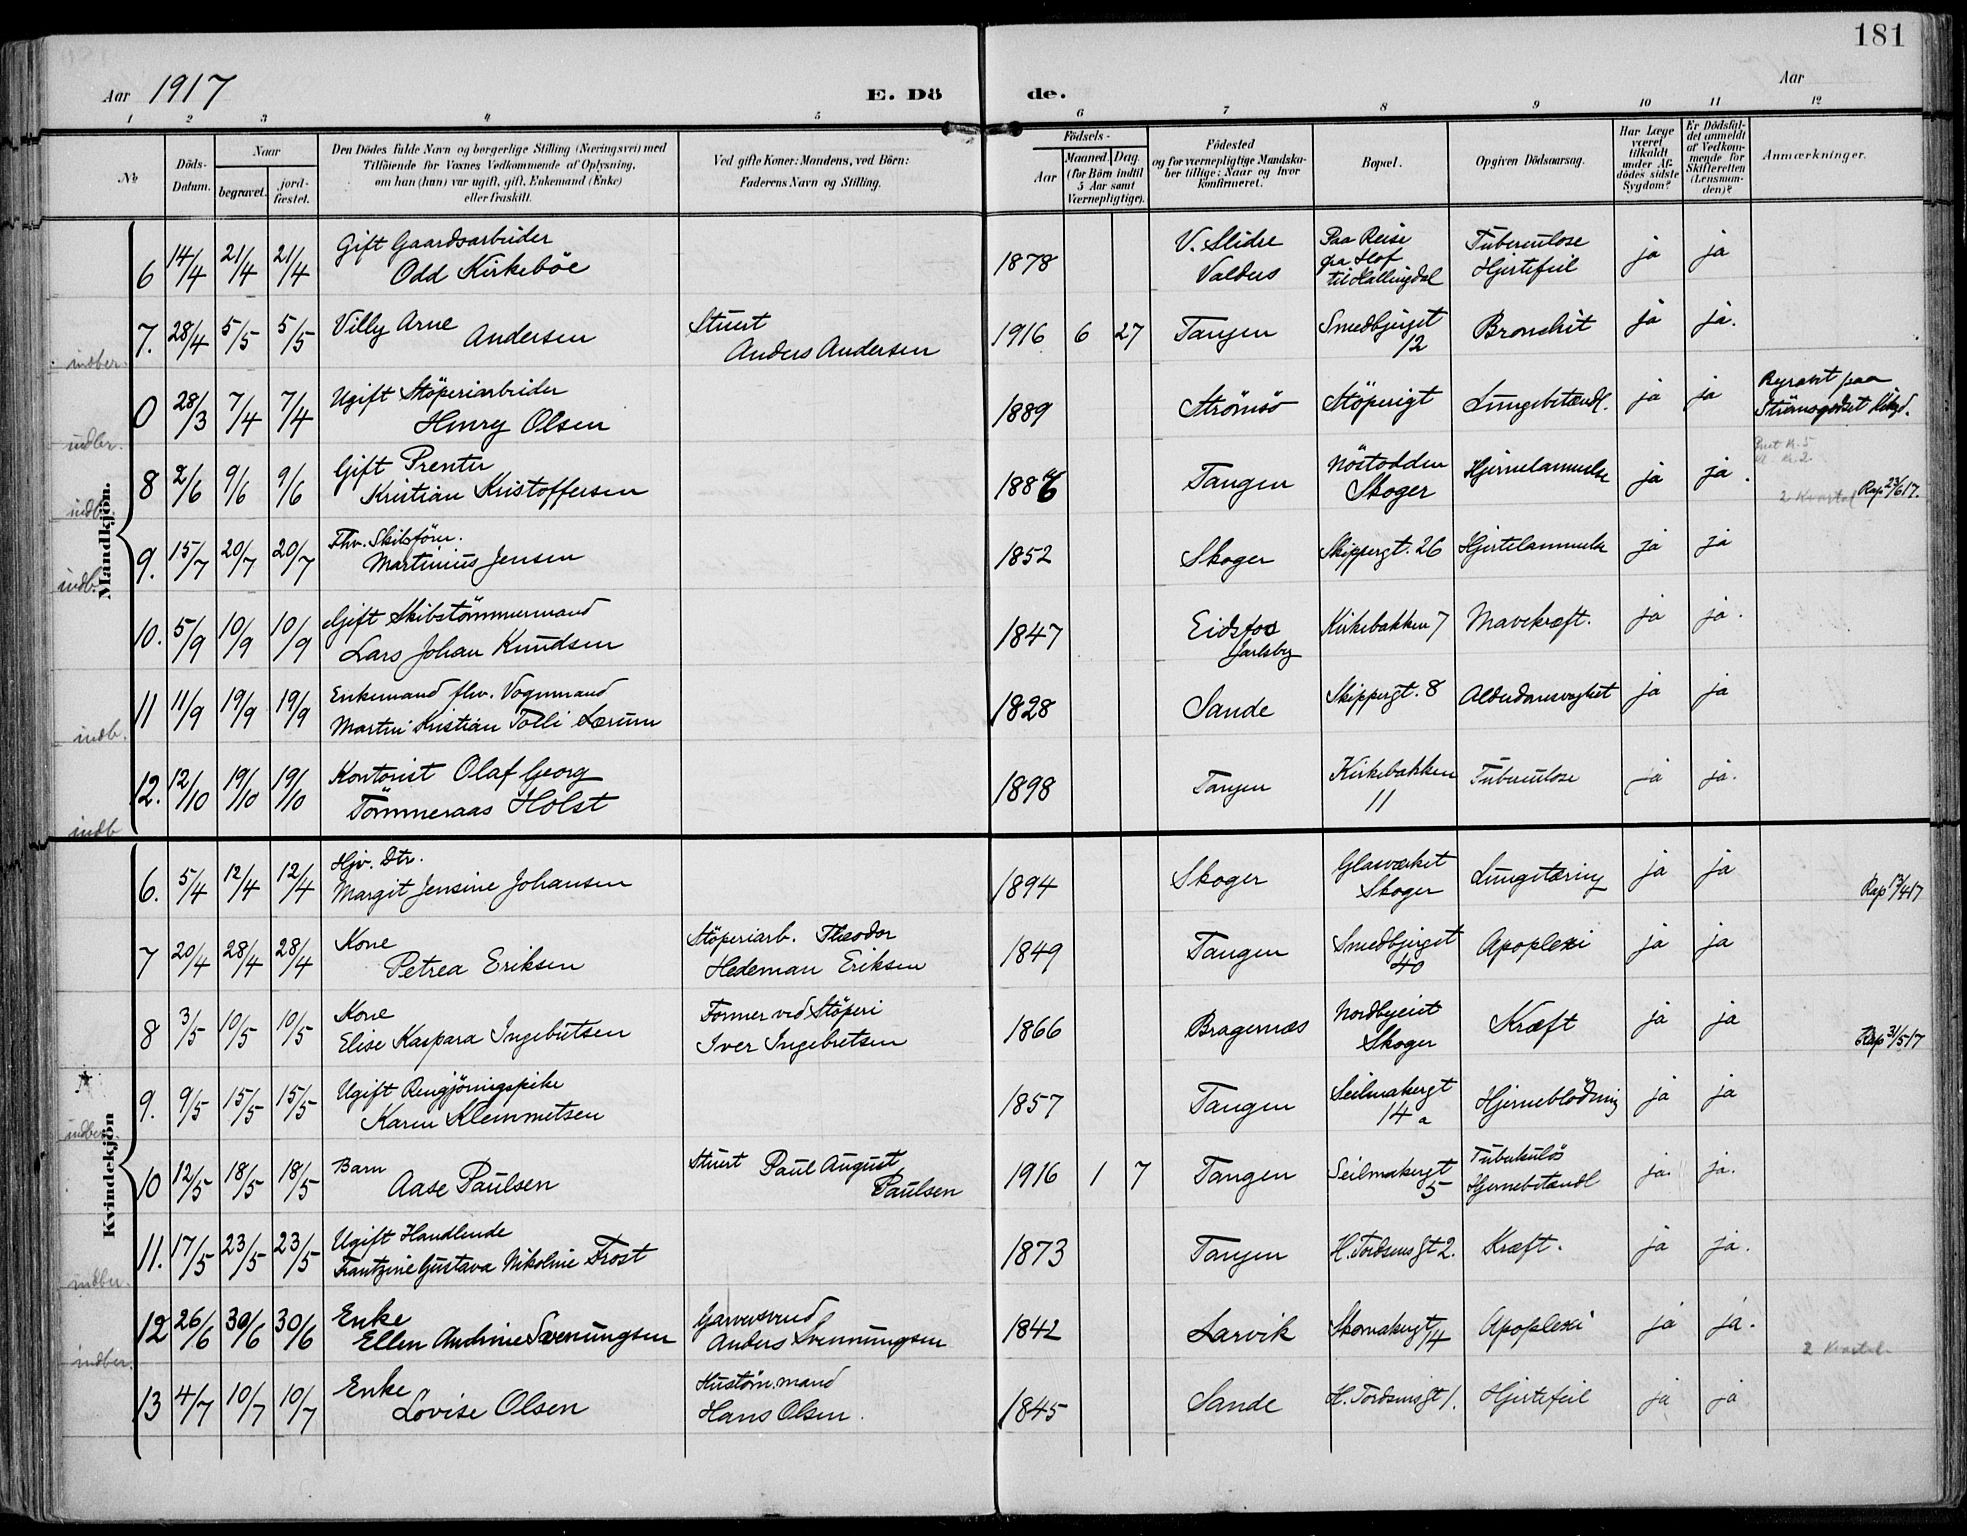 181
Aar 1917
E. Döde.
Aar
1 2 3 4 5 6 7 8 9 10 11 12
No
Döds-Datum.
Naar
begravet. jord-fæstet.
Den Dödes fulde Navn og borgerlige Stilling (Næringsvei) med
Tilföiende for Voxnes Vedkommende af Oplysning,
om han (hun) var ugift, gift, Enkemand (Enke)
eller fraskilt.
Ved gifte Koner: Mandens, ved Börn:
Faderens Navn og Stilling.
Födsels-
Aar Maaned. Dag.
(for Börn indtil
5 Aar samt
Værnepligtige).
Födested
og for værnepligtige Mandska-
ber tillige: Naar og hvor
konfirmeret.
Bopæl.
Opgiven Dödsaarsag.
Har Læge
været
tilkaldt
under Af-
dödes sidste
Sygdom?
Er Dödsfal-
det anmeldt
af Vedkom-
mende for
Skifteretten
(Lensman-
den)?
Anmærkninger.
Mandkjön.
6 14/4 21/4 21/4 Gift Gaardsarbeider
Odd Kirkeböe 1878 V. Slidre
Valders Paa Reise
fra Hof
til Hallingdal Tuberculose
Hjertefeil ja ja
7. 28/4 5/5 5/5 Villy Arne
Andersen Stuert
Anders Andersen 1916 6 27 Tangen Smedbjerget
12 Bronchit ja ja.
indber.
0 28/3 7/4 7/4 Ugift Stöperiarbeider
Henry Olsen 1889 Strömsö Stöperigt Lungebetændl. ja ja
indber.
8 2/6 9/6 9/6 Gift Prenter
Kristian Kristoffersen Tangen Nöstodden
Skoger Hjernelammelse ja ja.
2 Kvartal Rap 23/6 17.
indb.
9. 15/7 20/7 20/7 Fhv. Skibsförer.
Martinius Jensen 1852 Skoger Skippergt. 26 Hjertelammelse ja ja
indb.
10. 5/9 10/9 10/9 Gift Skibstömmermand
Lars Johan Knudsen 1847 Eidsfos
Jarlsby Kirkebakken 7 Mavekræft. ja ja.
11 11/9 19/9 19/9 Enkemand fhv. Vognmand
Martin Kristian Tolli Lærum 1828 Sande Skippergt. 8 Alderdomssvaghet ja ja
indb.
12. 12/10 19/10 19/10 Kontorist Olaf Georg
Tömmeraas Holst 1898 Tangen Kirkebakken
11 Tuberculose ja ja.
indb
Kvindekjön
6. 5/4 12/4 12/4 Hjv. Dtr.
Margit Jensine Johansen 1894 Skoger Glasværket
Skoger Lungetæring ja ja Rap 13/4 17
7 20/4 28/4 28/4 Kone
Petrea Eriksen Stöperiarb. Theodor
Hedeman Eriksen 1849 Tangen Smedbjerget
40 Apoplexi ja ja
8 3/5 10/5 10/5 Kone
Elise Kaspara Ingebretsen Former ved Stöperi
Iver Ingebretsen 1866 Bragernæs Nordbyeiet
Skoger Kræft ja ja Rap 31/5 17
9. 9/5 15/5 15/5 Ugift Rengjöringspike
Karen Klemmetsen 1857 Tangen Seilmakergt
14 a Hjerneblödning ja ja
indber.
10 12/5 18/5 18/5 Barn
Aase Paulsen Stuert Paul August
Paulsen 1916 1 7 Tangen Seilmakergt
5 Tuberkulös
Hjernebetændl ja. ja.
11. 17/5 23/5 23/5 Ugift Handlende
Frantzine Gustava Nikoline Frost 1873 Tangen H. Tordsensgt 2. Kræft. ja ja.
indber.
12 26/6 30/6 30/6 Enke
Ellen Andrine Svennungsen Garversvend
Anders Svennungsen 1842 Larvik Skomakergt 4 Apoplexi ja ja.
2 Kvartal
indber.
13 4/7 10/7 10/7 Enke
Lovise Olsen Hustöm.mand
Hans Olsen. 1845 Sande H. Tordsensgt 1. Hjertefeil ja ja